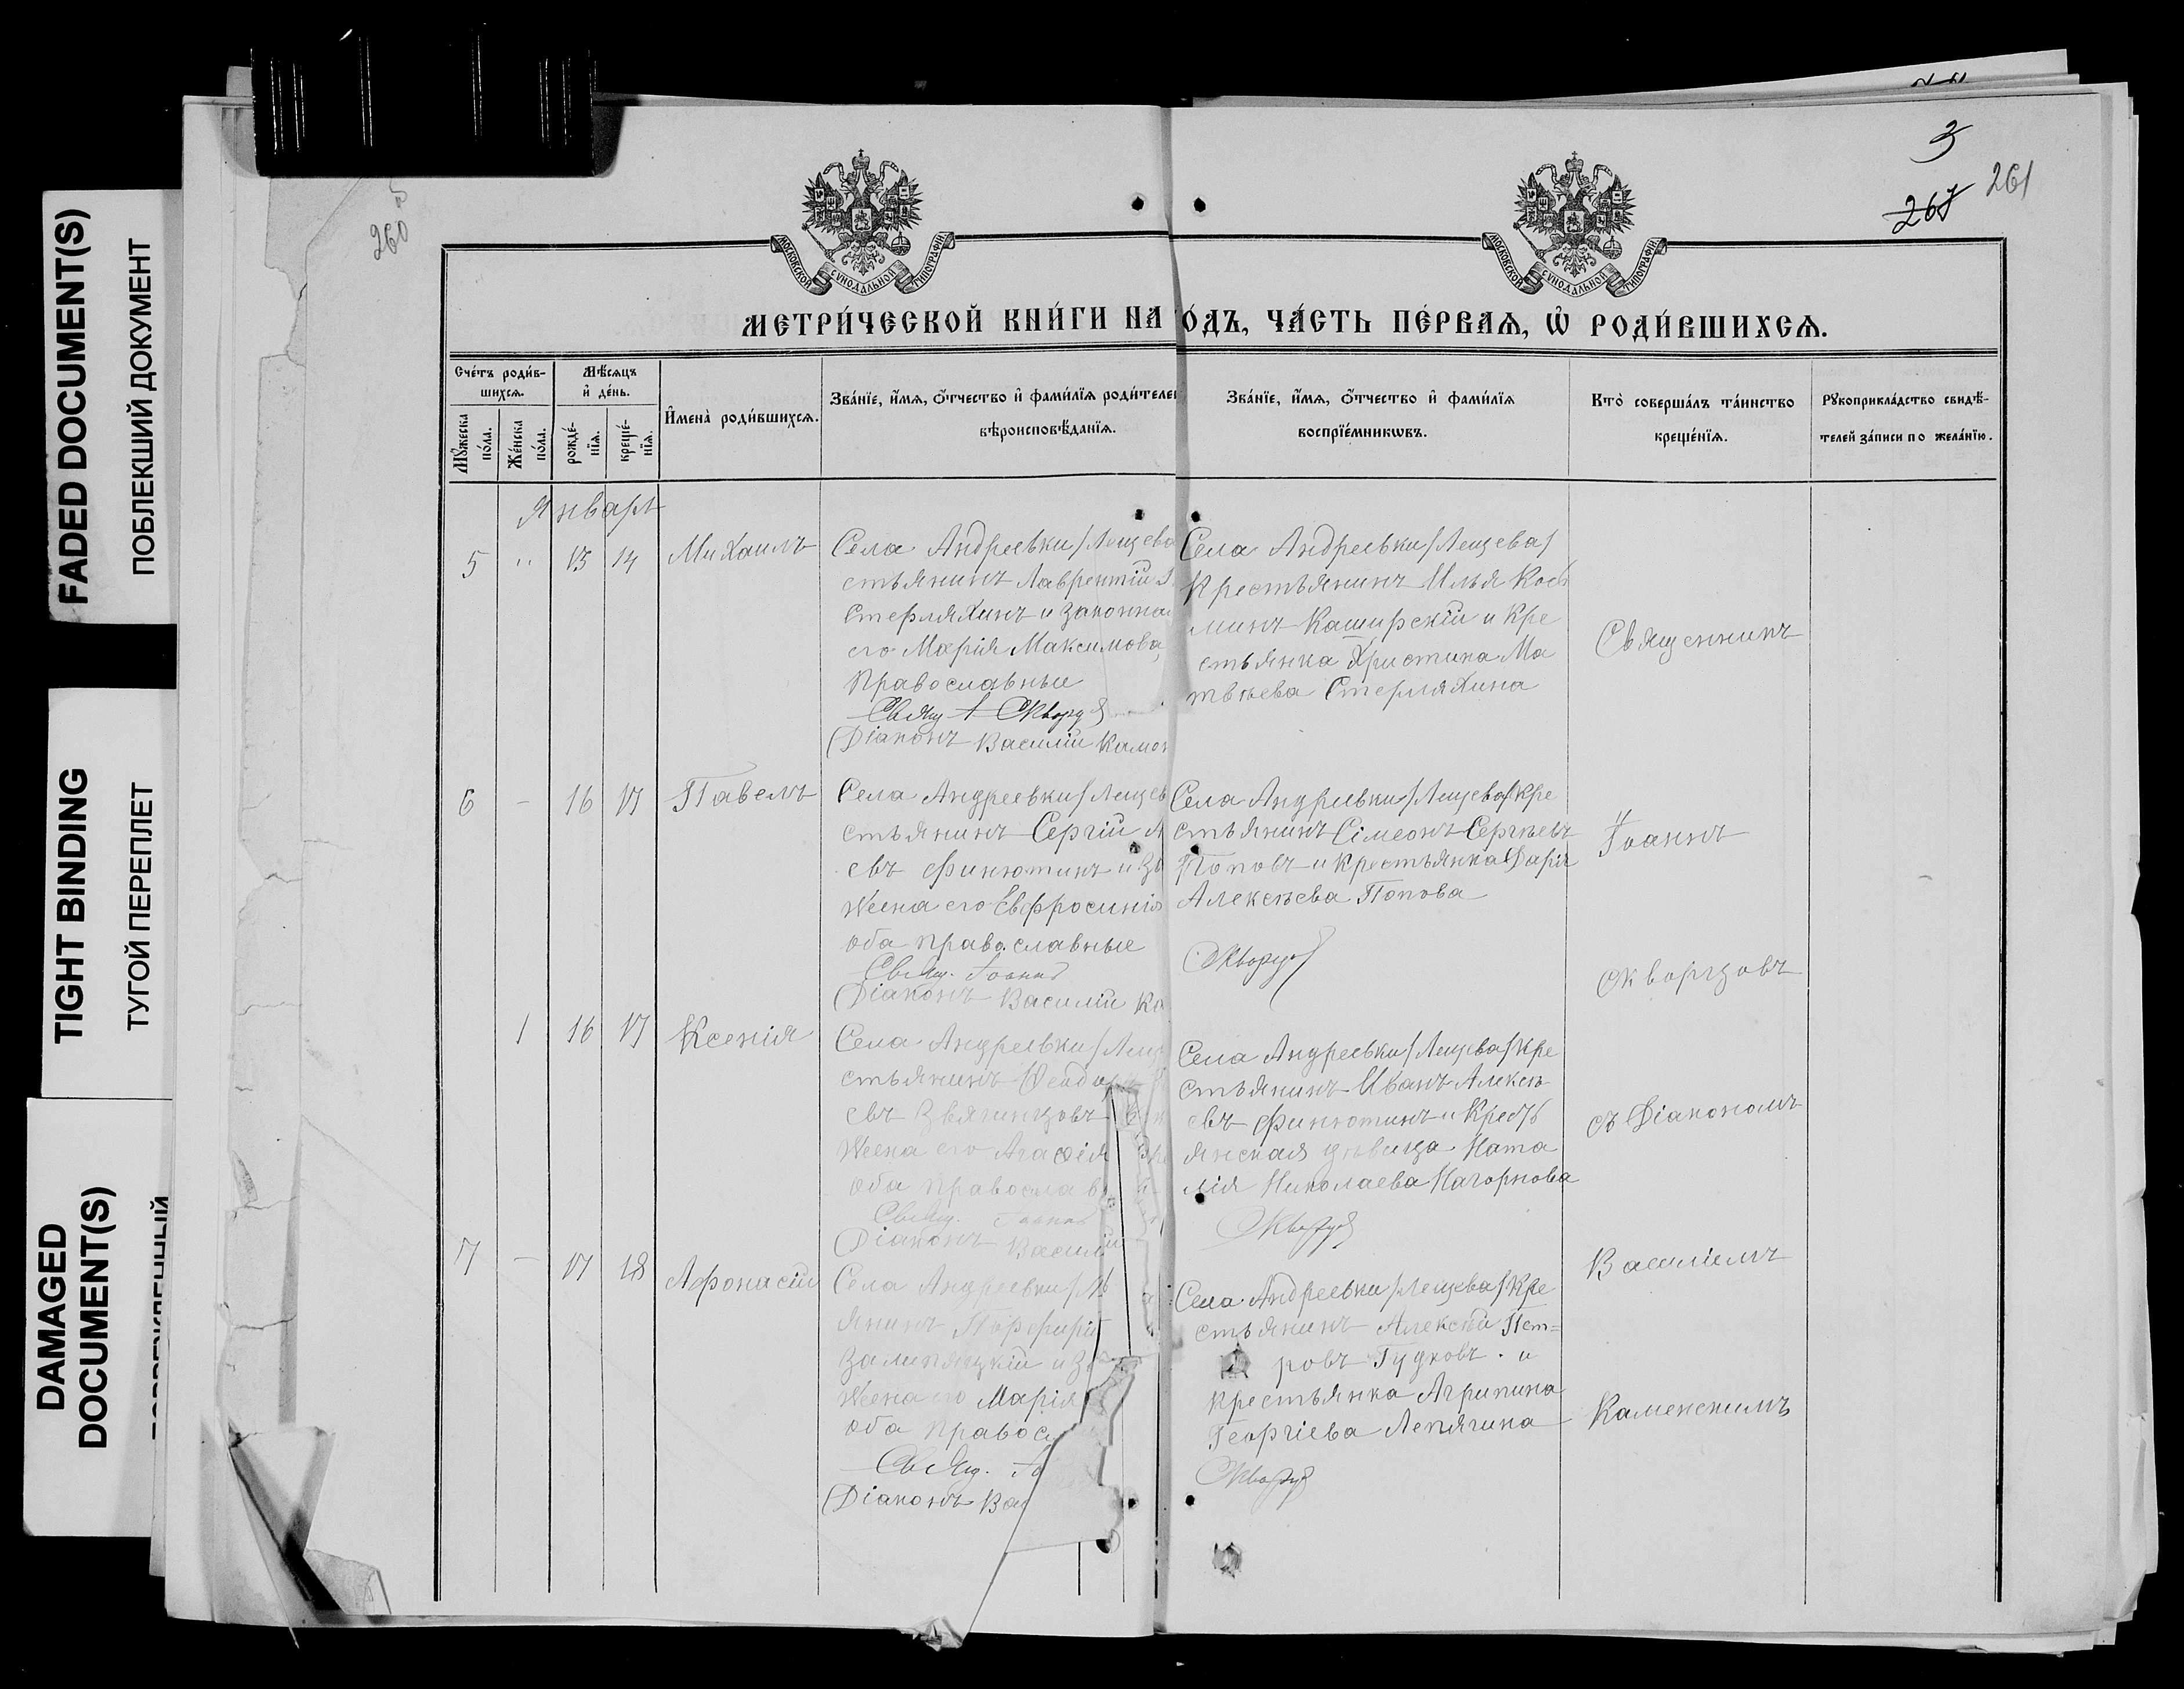 FADED DOCUMENT(S)
ПОБЛЕКШИЙ ДОКУМЕНТ
TIGHT BINDING
ТУГОЙ ПЕРЕПЛЕТ
DAMAGED
DOCUMENT(S)
260
3
261
МОСКОВСКОЙ СѴНОДАЛЬНОЙ ТИПОГРАФІИ
МОСКОВСКОЙ СѴНОДАЛЬНОЙ ТИПОГРАФІИ
МЕТРИ́ЧЕСКОЙ КНИ́ГИ НА
О́ДЪ, ЧА́СТЬ ПЕ́РВАѦ, Ѡ҆ РОДИ́ВШИХСѦ.
Сче́тъ роди́в-
шихсѧ.
Мѣ́сѧцъ
и҆ де́нь.
И҆мена̀ роди́вшихсѧ.
Зва́нїе, и҆́мѧ, ѻ҆́тчество и҆ фами́лїѧ роди́телей
вѣроисповѣ́данїѧ.
Зва́нїе, и҆́мѧ, ѻ҆́тчество и҆ фами́лїѧ
воспрїе́мникѡвъ.
Кто̀ соверша́лъ та́инство
креще́нїѧ.
Рꙋкоприкла́дство свидѣ́-
телей за́писи по жела́нїю.
Мꙋ́жеска
по́ла.
Же́нска
по́ла.
рожде́-
нїѧ.
креще́-
нїѧ.
Январь
5 " 13 14 Михаилъ
Села Андреевки/Лещева
стьянинъ Лаврентій
Стерляхинъ и законная
его Марія Максимова,
Православные
Свящ. І Скворц
Діаконъ Василій Камен
Села Андреевки/Лещева/
Крестьянинъ Илья Кось
минъ Каширскій и Кре
стьянка Христина Ма
твѣева Стерляхина
6 - 16 17 Павелъ
Села Андреевки/Лещев
стьянинъ Сергій А
евъ Финютинъ и За
Жена его Евфросинія
оба православные
Свящ. Іоаннъ
Діаконъ Василій Ка
Села Андреевки/Лещева/кре
стьянинъ Сімеонъ Сергѣевъ
Поповъ и крестьянка Дарія
Алексѣева Попова
Скворцов
1 16 17 Ксенія
Села Андреевки/Лещ
стьянинъ Ѳеодоръ
евъ Звягинцовъ
Жена его Агаѳія
оба Православ
Свящ. Іоаннъ
Діаконъ Василій
Села Андреевки/Лещева/кре
стьянинъ Иванъ Алексѣ
евъ Финютинъ и Кресть
янская дѣвица Ната
лія Николаева Нагорнова
Скворцов
7 - 17 18 Афонасій
Села Андреевки/Л
янинъ Порфирій
Залипяцкій и За
Жена его Марія
оба Правосл
Свящ. Іо
Діаконъ Ва
Села Андреевки/Лещева/кре
стьянинъ Алексѣй Пет=
ровъ Гудковъ и
крестьянка Агрипина
Георгіева Лепягина
Скворцов
Священникъ
Іоаннъ
Скворцовъ
съ Діакономъ
Василіемъ
Каменскимъ